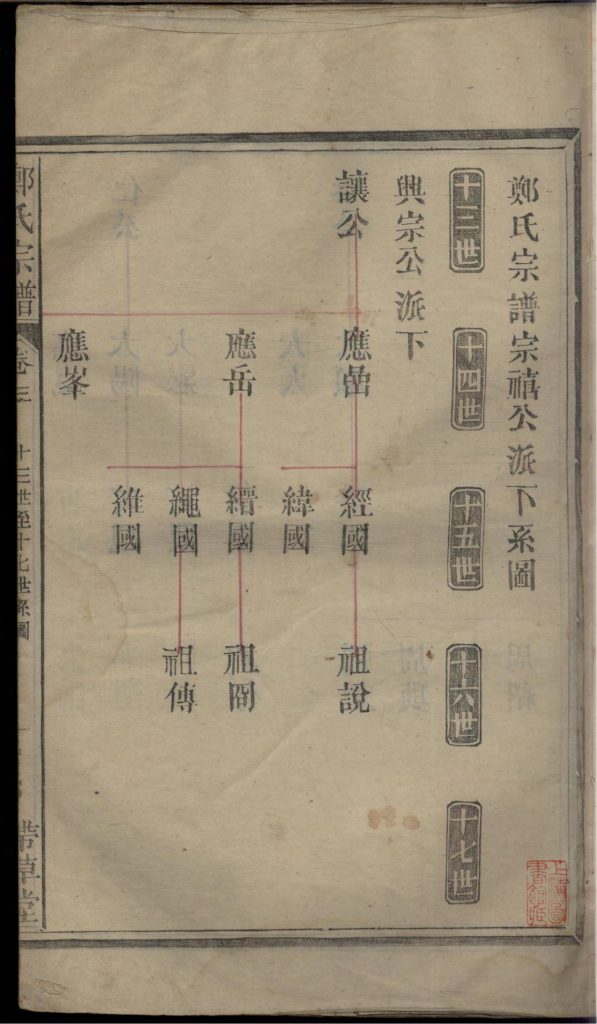 鄭氏宗譜宗禧公派下系圖
十三世
十四世
十五世
十六世
十七世
興宗公派下
讓公
應嵒
經國
祖說
緯國
應岳
縉國
祖岡
繩國
祖傳
維國
應峯
鄭氏宗譜
卷三
十三世至十七世系圖
帶草堂